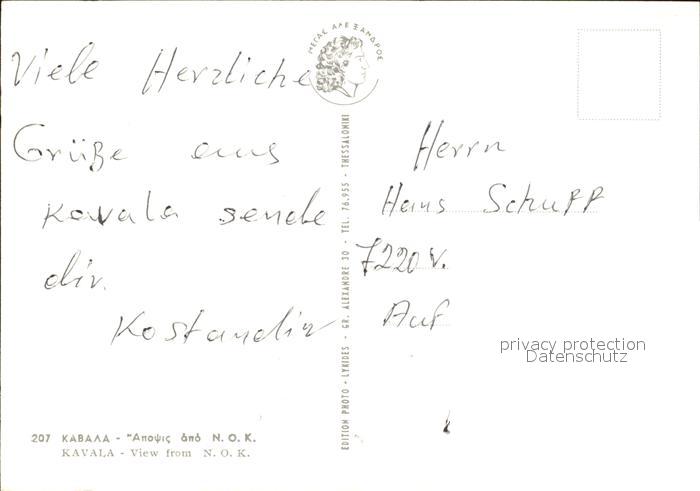 Viele Herzliche
Grüße aus
Kavala sende
dir.
Kostandin
ΜΕΓΑΣ ΑΛΕΞΑΝΔΡΟΣ
EDITION PHOTO - LYKIDES - GR. ALEXANDRE 30 - TEL. 76.955 - THESSALONIKI
Herrn
Hans Schupp
7220 V.
Auf
privacy protection
Datenschutz
207 ΚΑΒΑΛΑ - Ἄποψις ἀπό N. O. K.
KAVALA - View from N. O. K.